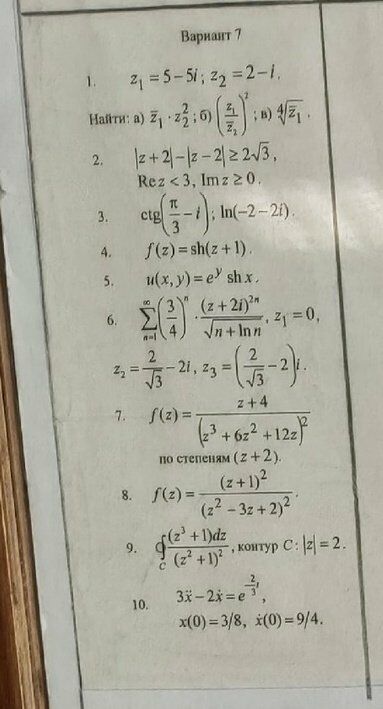 Вариант 7
1. z₁ = 5 – 5i; z₂ = 2 – i.
Найти: а) z̅₁ · z₂²; б) (z₁/z̅₂)²; в) ∜z̅₁.
2. |z + 2| – |z – 2| ≥ 2√3,
Re z < 3, Im z ≥ 0.
3. ctg(π/3 – i); ln(–2 – 2i).
4. f(z) = sh(z + 1).
5. u(x, y) = e^y sh x.
6. ∑_{n=1}^{∞} (3/4)^n · (z + 2i)^{2n}/√(n + ln n), z₁ = 0,
z₂ = 2/√3 – 2i, z₃ = (2/√3 – 2)i.
7. f(z) = (z + 4)/(z³ + 6z² + 12z)²
по степеням (z + 2).
8. f(z) = (z + 1)²/(z² – 3z + 2)².
9. ∮_C (z³ + 1)dz/(z² + 1)², контур C: |z| = 2.
10. 3ẍ – 2ẋ = e^{(2/3)t},
x(0) = 3/8, ẋ(0) = 9/4.